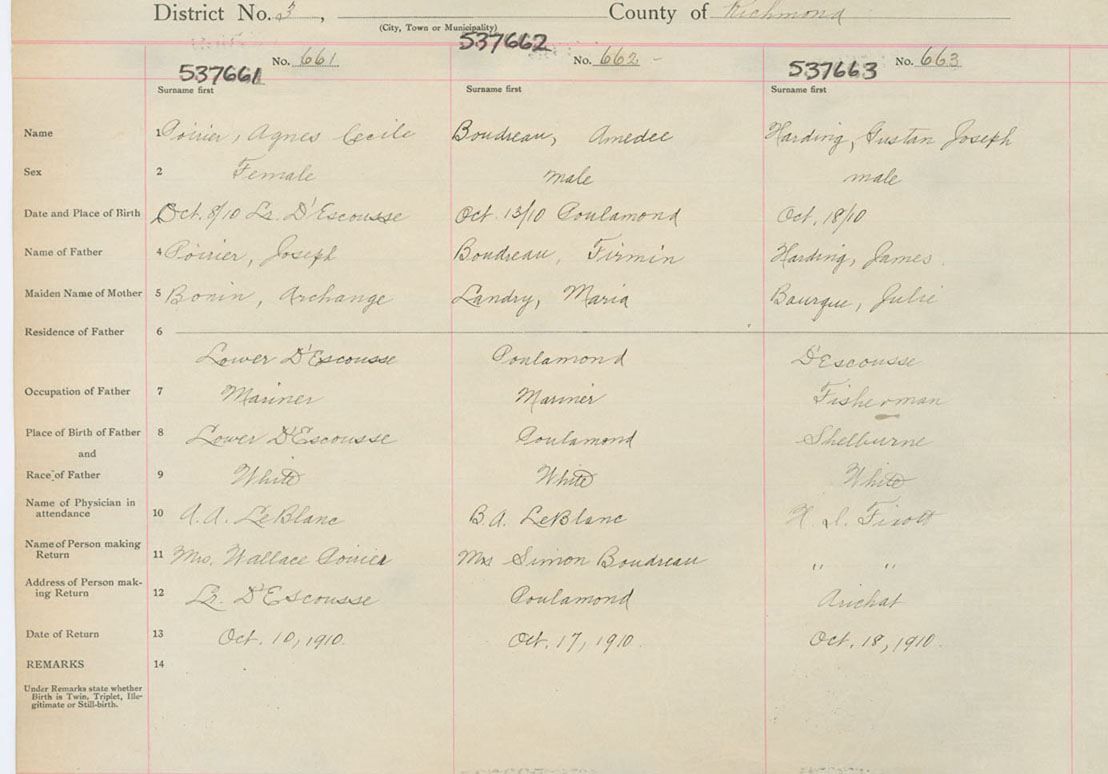 District No. 3, County of Richmond
(City, Town or Municipality)
537661 No. 661 537662 No. 662 537663 No. 663
Surname first Surname first Surname first
Name 1 Poirier, Agnes Cecile Boudreau, Amedee Harding, Gustan Joseph
Sex 2 Female male male
Date and Place of Birth Oct. 8/10 Lr. D'Escousse Oct. 13/10 Poulamond Oct. 18/10
Name of Father 4 Poirier, Joseph Boudreau, Firmin Harding, James
Maiden Name of Mother 5 Bonin, Archange Landry, Maria Bourque, Julie
Residence of Father 6
Lower D'Escousse Poulamond D'Escousse
Occupation of Father 7 Mariner Mariner Fisherman
Place of Birth of Father 8 Lower D'Escousse Poulamond Shelburne
and
Race of Father 9 White White White
Name of Physician in attendance 10 A.A. LeBlanc B.A. LeBlanc
Name of Person making Return 11 Mrs. Wallace Poirier Mrs Simon Boudreau " "
Address of Person making Return 12 Lr. D'Escousse Poulamond Arichat
Date of Return 13 Oct. 10, 1910. Oct. 17, 1910. Oct. 18, 1910.
REMARKS 14
Under Remarks state whether
Birth is Twin, Triplet, Ille-
gitimate or Still-birth.